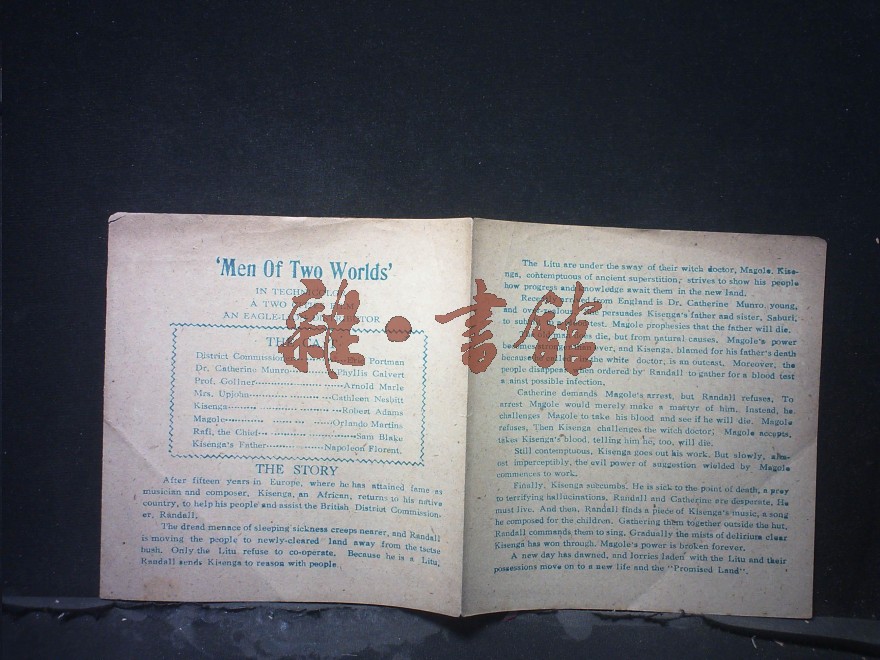 'Men Of Two Worlds'
IN TECHNICOLOR
A TWO
AN EAGLE-LION
THE CAST
District Commissioner Portman
Dr. Catherine Munro Phyllis Calvert
Prof. Gollner Arnold Marle
Mrs. Upjohn Cathleen Nesbitt
Kisenga Robert Adams
Magole Orlando Martins
Rafi, the Chief Sam Blake
Kisenga's Father Napoleon Florent.
THE STORY
After fifteen years in Europe, where he has attained fame as
musician and composer, Kisenga, an African, returns to his native
country, to help his people and assist the British District Commission-
er, Randall.
The dread menace of sleeping sickness creeps nearer, and Randall
is moving the people to newly-cleared land away from the tsetse
bush. Only the Litu refuse to co-operate. Because he is a Litu,
Randall sends Kisenga to reason with people
The Litu are under the sway of their witch doctor, Magole. Kise-
nga, contemptuous of ancient superstition, strives to show his people
how progress and knowledge await them in the new land.
arrived from England is Dr. Catherine Munro, young,
and over-zealous. She persuades Kisenga's father and sister, Saburi,
to test. Magole prophesies that the father will die.
dies, but from natural causes, Magole's power
becomes stronger than ever, and Kisenga, blamed for his father's death
because the white doctor, is an outcast. Moreover, the
people disappear when ordered by Randall to gather for a blood test
a ainst possible infection.
Catherine demands Magole's arrest, but Randall refuses, To
arrest Magole would merely make a martyr of him. Instead, he
challenges Magole to take his blood and see if he will die. Magole
refuses, Then Kisenga challenges the witch doctor, Magole accepts,
takes Kisenga's blood, telling him he, too, will die.
Still contemptuous, Kisenga goes out his work. But slowly, alm-
ost imperceptibly, the evil power of suggestion wielded by Magole
commences to work.
Finally, Kisenga succumbs. He is sick to the point of death, a prey
to terrifying hallucinations. Randall and Catherine are desperate. He
must live. And then, Randall finds a piece of Kisenga's music, a song
he composed for the children. Gathering them together outside the hut,
Randall commands them to sing. Gradually the mists of delirium clear
Kisenga has won through. Magole's power is broken forever.
A new day has dawned, and lorries laden with the Litu and their
possessions move on to a new life and the "Promised Land".
雜·書館